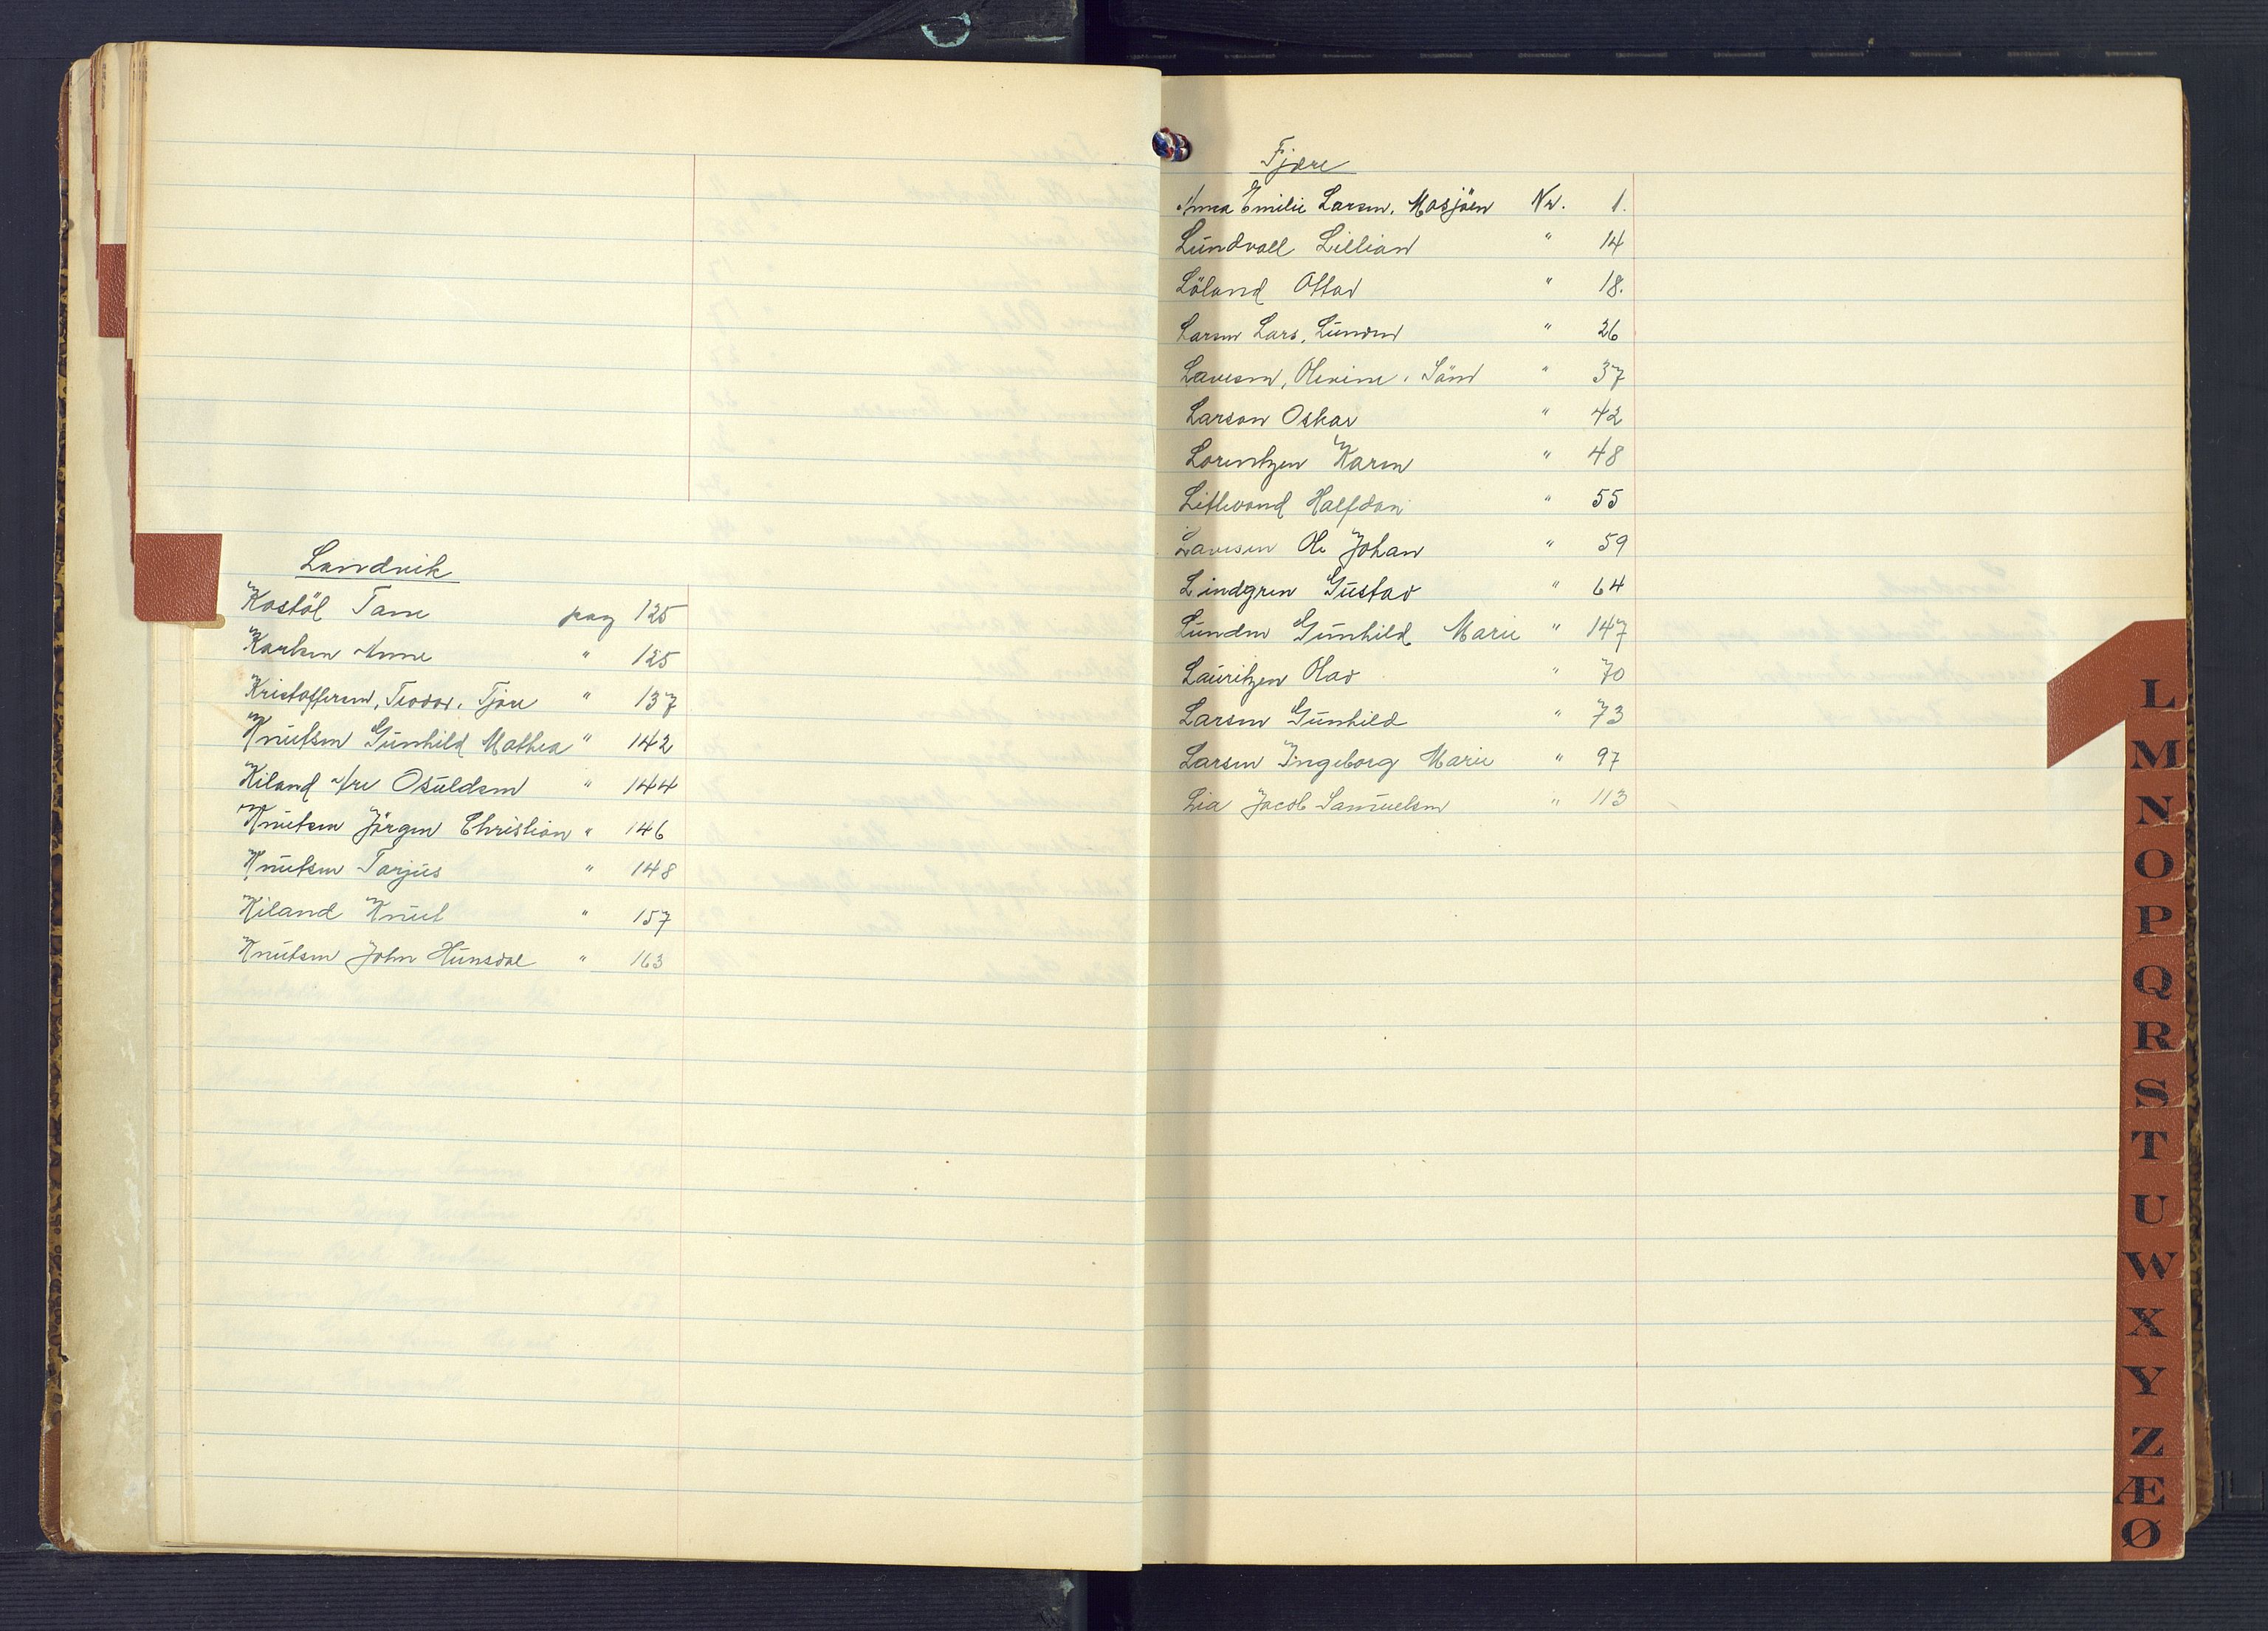 Landvik
Kastöl Tane pag 125
Karlsen Anne " 125
Kristoffersen, Teodor, Fjære " 137
Knutsen Gunhild Mathea " 142
Kiland Are Osuldsen " 144
Knutsen Jörgen Christian " 146
Knutsen Tarjus " 148
Kiland Knut " 157
Knutsen John Hunsdal " 163
Fjære
Anna Emilie Larsen, Mosjöen Nr. 1.
Lundvall Lillian " 14
Löland Ottar " 18.
Larsen Lars, Lunden " 26
Lavesen, Olevine, " 37
Larson Oskar " 42
Lorentzen Karen " 48
Litlevand Halfdan " 55
Lavesen Ole Johan " 59
Lindgren Gustav " 64
Lunden Gunhild Marie " 147
Lauritzen Olav " 70
Larsen Gunhild " 73
Larsen Ingeborg Marie " 97
Lia Jacob Samuelsen " 113
L
M
N
O
P
Q
R
S
T
U
W
X
Y
Z
Æ
Ø